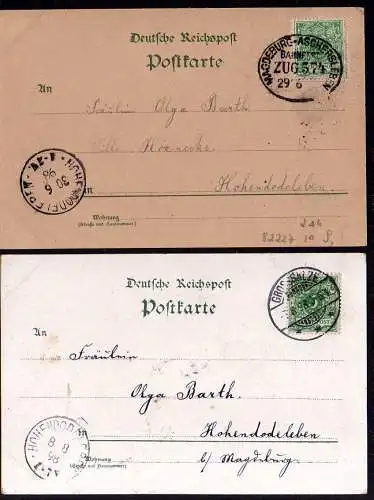 Deutsche Reichspost
Postkarte
MAGDEBURG-ASCHERSLEBEN
BAHNPOST
ZUG 574
29 6
An
Fräulein Olga Barth
Villa
Hohendodeleben
HOHENDODELEBEN
30 6
98
Wohnung
(Straße und Hausnummer)
244
82227 10
Deutsche Reichspost
Postkarte
An
Fräulein
Olga Barth.
Hohendodeleben
b/ Magdeburg.
Wohnung
(Straße und Hausnummer)
8 8
98